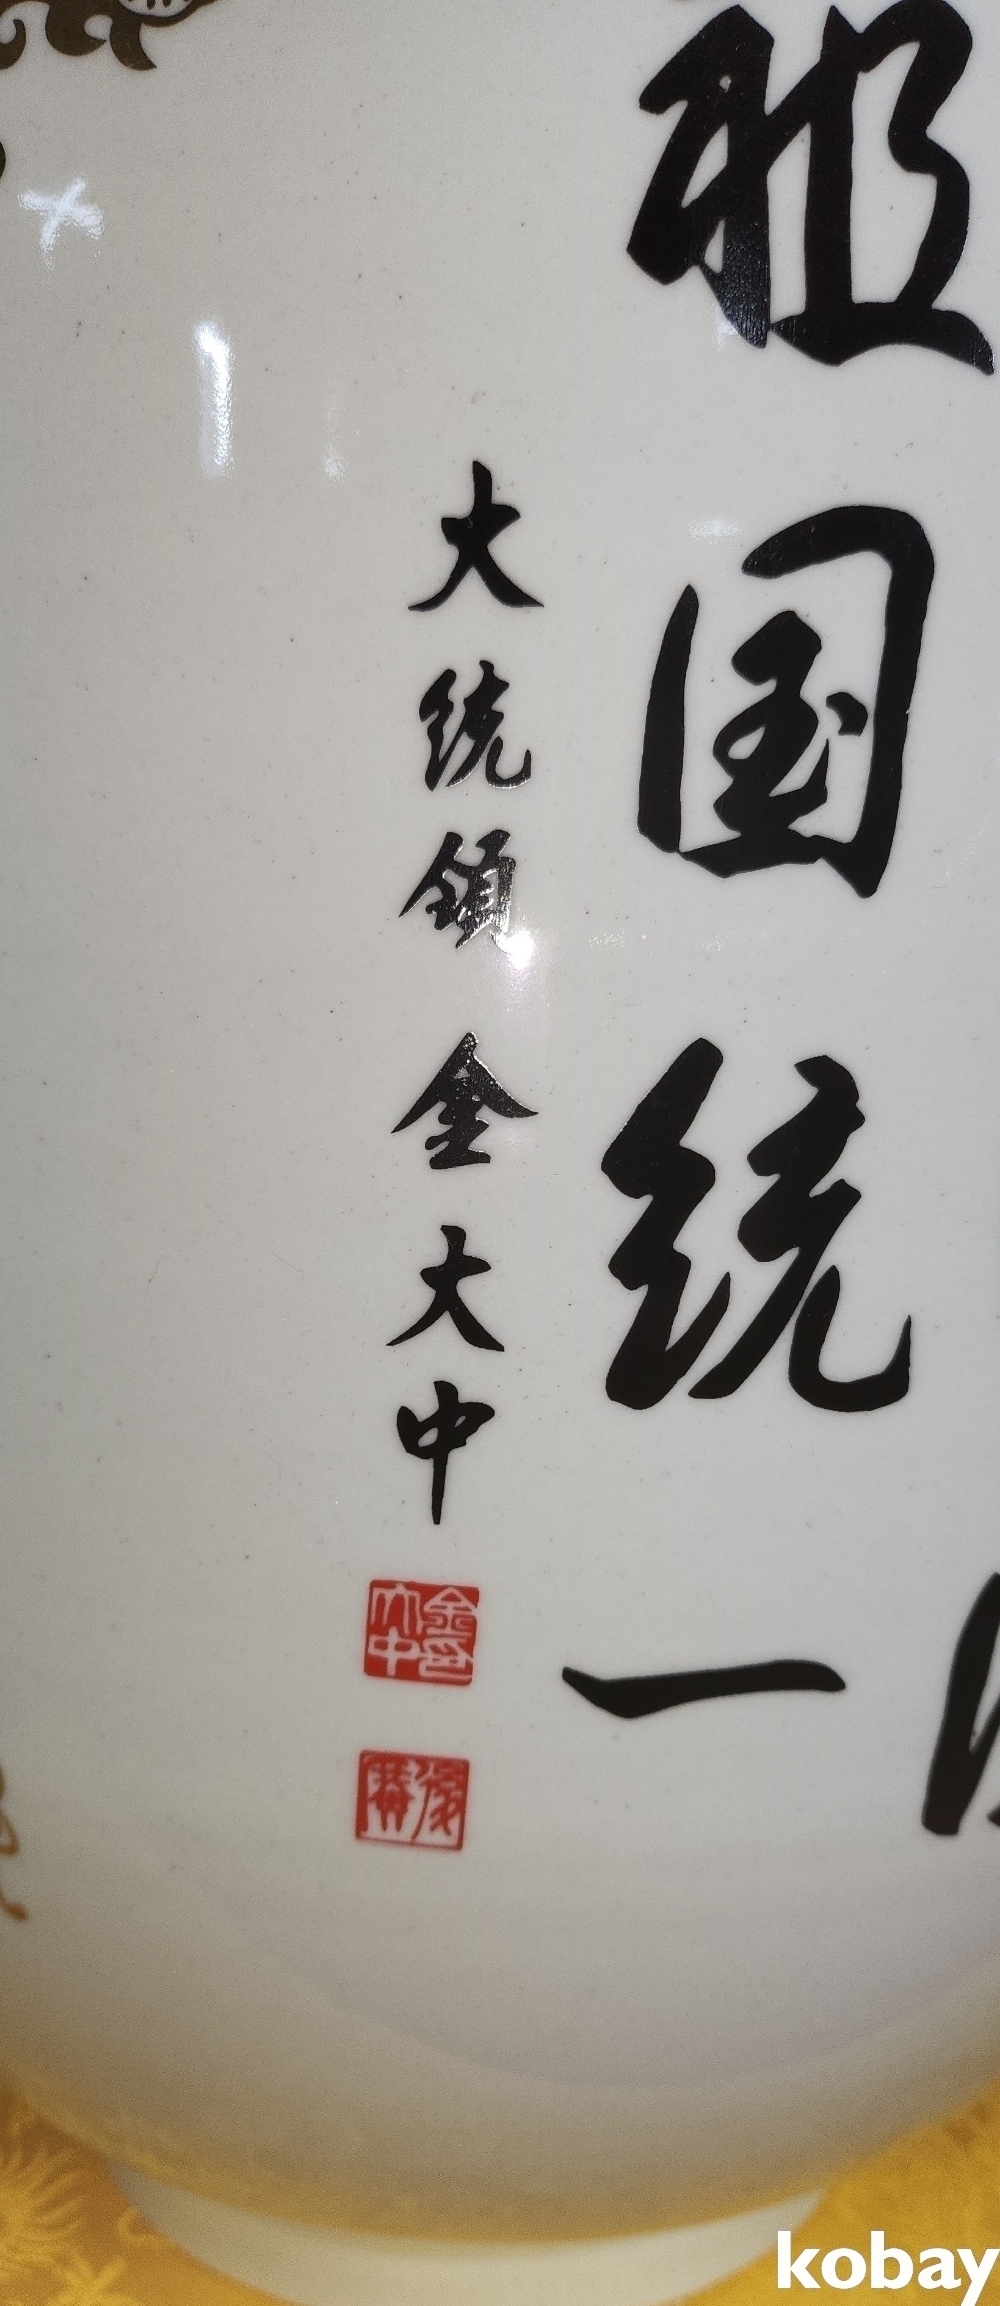 祖国统一
大统領 金大中
金大中印
kobay